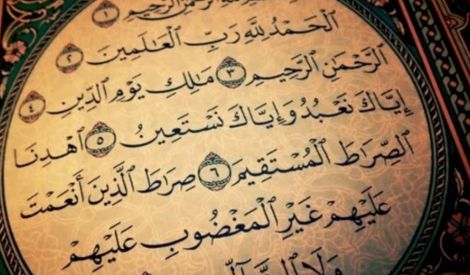 ٱلرَّحْمَٰنِ ٱلرَّحِيمِ ١
ٱلْحَمْدُ لِلَّهِ رَبِّ ٱلْعَٰلَمِينَ ٢
ٱلرَّحْمَٰنِ ٱلرَّحِيمِ ٣ مَٰلِكِ يَوْمِ ٱلدِّينِ ٤
إِيَّاكَ نَعْبُدُ وَإِيَّاكَ نَسْتَعِينُ ٥ ٱهْدِنَا
ٱلصِّرَٰطَ ٱلْمُسْتَقِيمَ ٦ صِرَٰطَ ٱلَّذِينَ أَنْعَمْتَ
عَلَيْهِمْ غَيْرِ ٱلْمَغْضُوبِ عَلَيْهِمْ
وَلَا